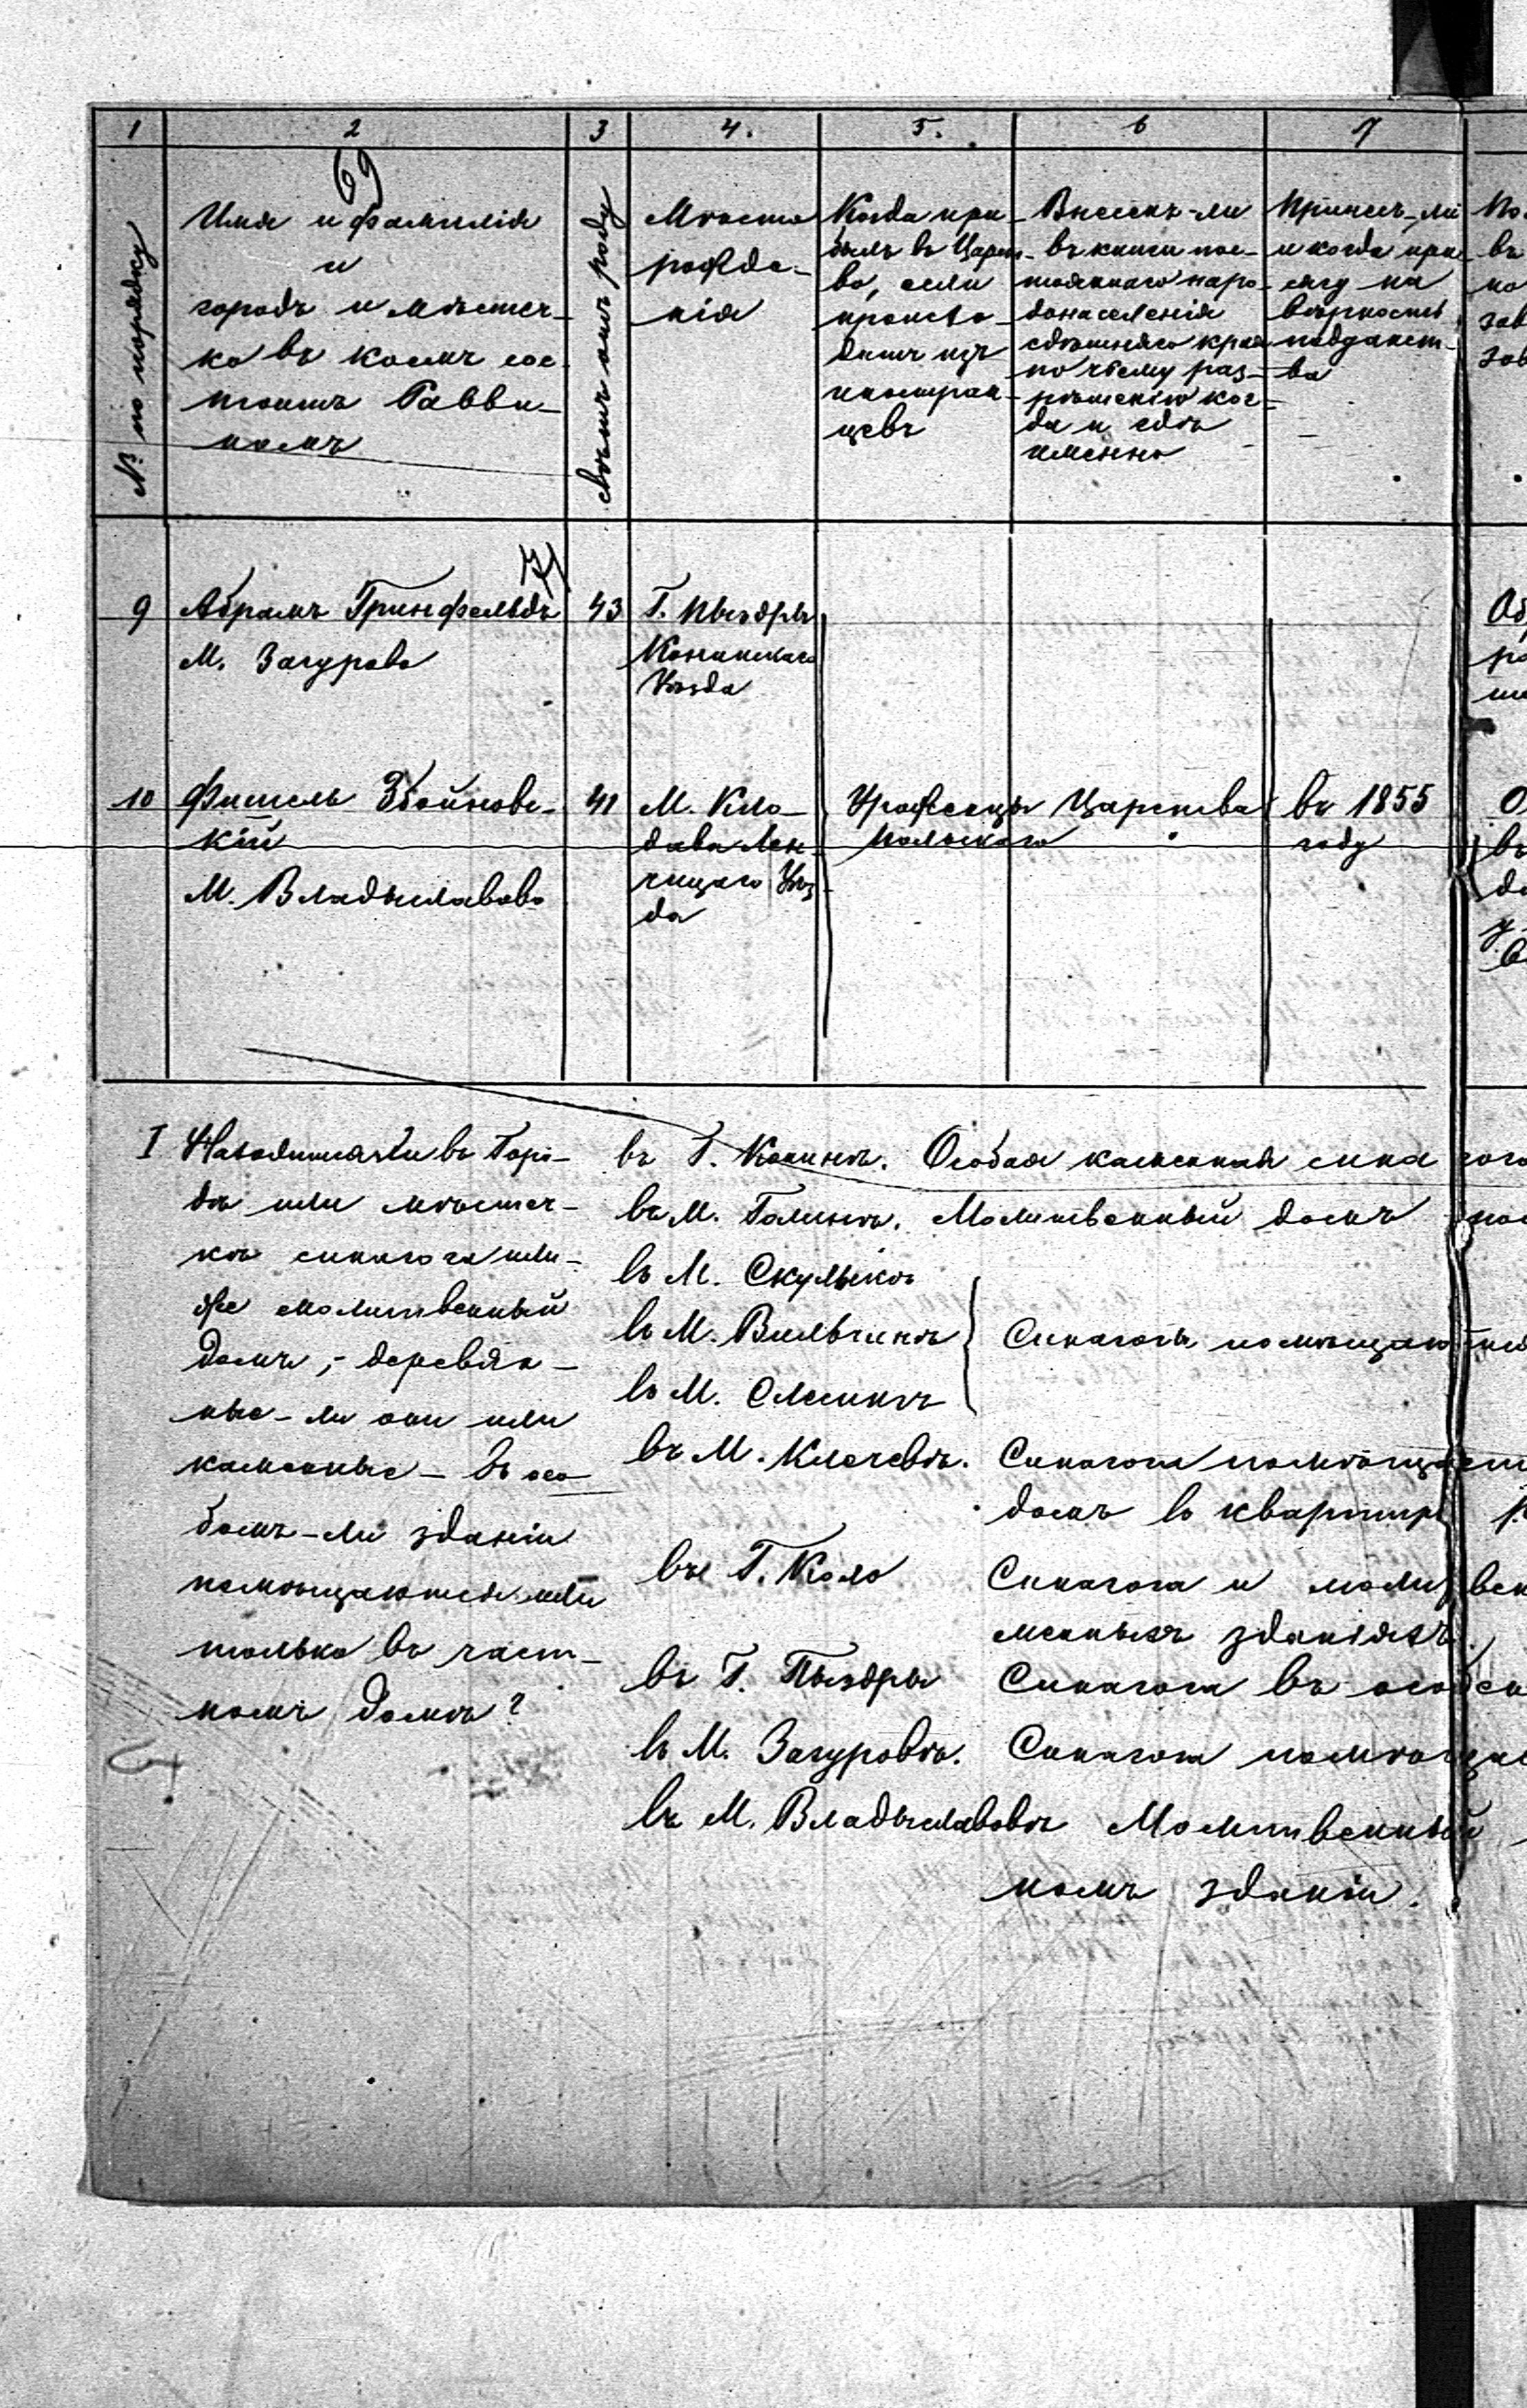 1 2 3 4. 5. 6 7
69
№ по порядку
Имя и фамилія
и
городъ и мѣстеч-
ко въ коемъ сос-
тоитъ Равви-
номъ
сколько отъ роду
Мѣсто
рожде-
нія
Когда при-
былъ въ Царст-
во, если
происхо-
дитъ изъ
иностран-
цевъ
Внесенъ-ли
въ книги пос-
тояннаго наро-
донаселенія
здѣшняго края
по чьему раз-
рѣшенію ког-
да и гдѣ
именно
Принялъ-ли
и когда при-
сягу на
вѣрность
подданст-
ва
71
9 Абрамъ Гринфельдъ 43 Г. Пыздры
М. Загурово
Конинскаго
Уѣзда
10 Фишель Збойновс- 41 М. Кло- Уроженцы Царства въ 1855
кій дава Лен- Польскаго году
М. Владыславово чицаго Уѣз-
да
I Находится ли въ Горо-
дѣ или мѣстеч-
кѣ синагога или-
же молитвенный
домъ, - деревян-
ные-ли они или
каменные - въ осо-
бомъ-ли зданіи
помѣщаются или
только въ част-
номъ домѣ?
въ Г. Конинѣ. Особая каменная сина гого
въ М. Голинѣ. Молитвенный домъ
въ М. Скульскѣ
въ М. Вильчинѣ Синагоги помѣщаю
въ М. Слесинѣ
въ М. Клечевѣ. Синагога помѣщает
домъ въ квартирѣ
въ Г. Коло Синагога и моли вен
менныхъ зданіяхъ.
въ Г. Пыздры Синагога въ особен
въ М. Загуровѣ. Синагога помѣщае
въ М. Владыславовѣ Молитвенный
номъ зданіи.